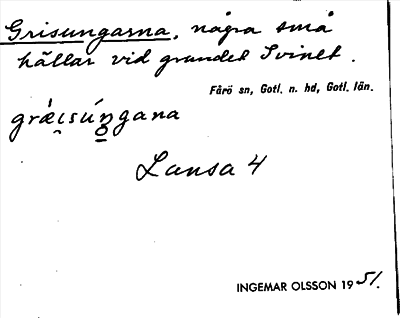 Grisungarna, några små
hällar vid grundet Svinet.
Fårö sn, Gotl. n. hd, Gotl. län.
grǽi̯súŋgana
Lansa 4
INGEMAR OLSSON 1951.